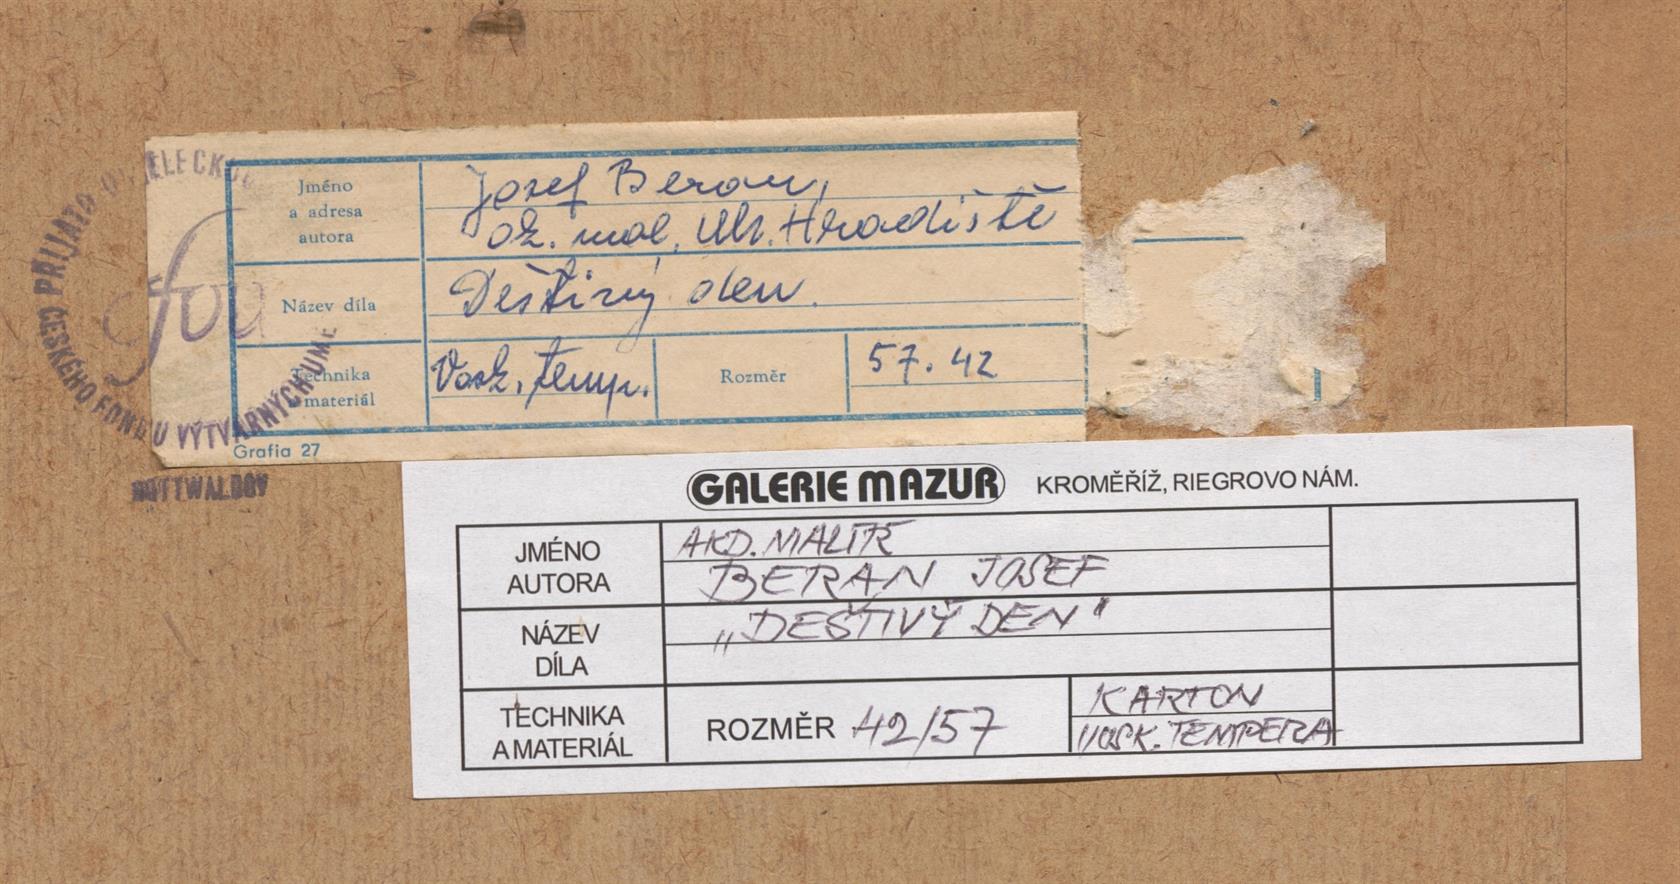 PŘIJATO UMĚLECKOU
ČESKÉHO FONDU VÝTVARNÝCH UMĚ
GOTTWALDOV
Jméno
a adresa
autora
Josef Beran,
ak. mal. Uh. Hradiště
Název díla
Deštivý den.
Technika
a materiál
Vosk. temp.
Rozměr
57.42
Grafia 27
GALERIE MAZUR KROMĚŘÍŽ, RIEGROVO NÁM.
JMÉNO
AUTORA
AKD. MALÍŘ
BERAN JOSEF
NÁZEV
DÍLA
„DEŠTIVÝ DEN"
TECHNIKA
A MATERIÁL
ROZMĚR 42/57
KARTON
VOSK. TEMPERA